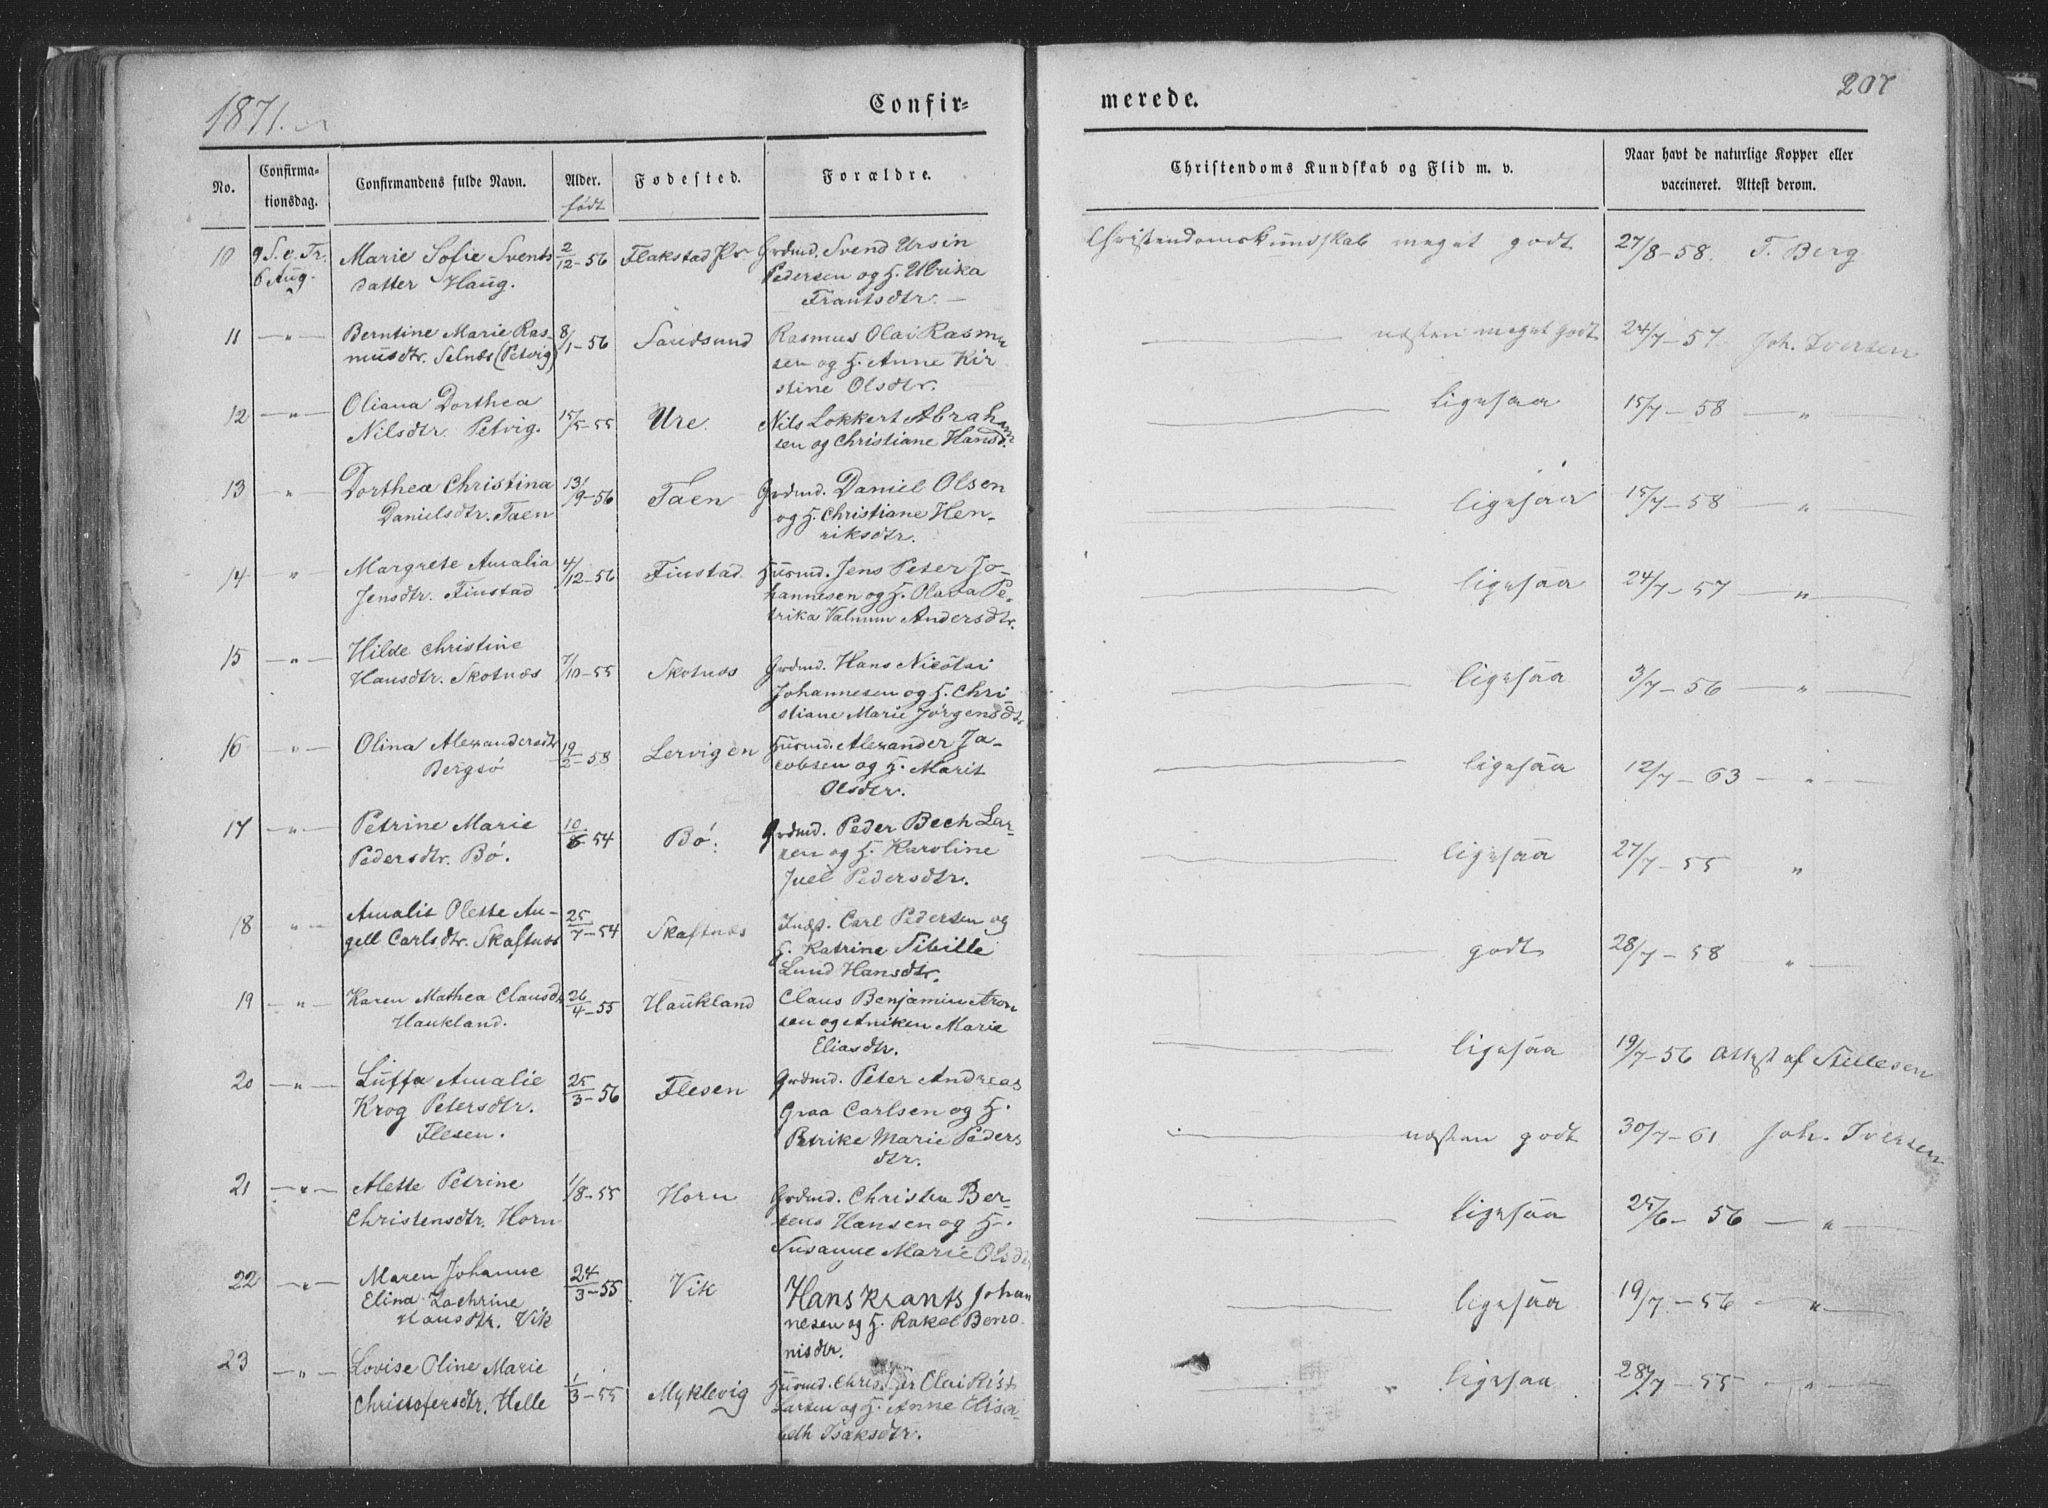 1871.
Confir=
merede.
207
No.
Confirma-
tionsdag.
Confirmandens fulde Navn.
Alder.
født
Fødested.
Forældre.
Christendoms Kundskab og Flid m. v.
Naar havt de naturlige Kopper eller
vaccineret. Attest derom.
10 9 S. e. Tr. Marie Sofie Svends 2/12-56 Flakstad Pr. Grdmd. Svend Ursin Christendomskundskab meget godt 27/8-58. T. Berg
6 Aug. datter Haug. Pedersen og H. Ulrika
Frantsdtr. —
11 —"— Berntine Marie Ras- 8/1-56 Sandsund Rasmus Olai Rasmu næsten meget godt 24/7-57. Joh. Iversen
musdtr. Selnæs (Petvig) sen og H. Anne Kir
stine Olsdtr.
12 —"— Oliana Dorthea 15/5-55 Ure. Nils Lokkert Abraham ligesaa 15/7-58 —"—
Nilsdtr. Petvig. sen og Christiane Hansd.
13 —"— Dorthea Christina 13/9-56 Taen Grdmd. Daniel Olsen ligesaa 15/7-58 —"—
Danielsdtr. Taen og H. Christiane Hen-
riksdtr.
14 " Margrete Amalia 4/12-56 Finstad. Husmd. Jens Peter Jo- ligesaa 24/7-57 —"—
Jensdtr. Finstad hannesen og H. Olava Pe-
trika Valnum Andersdtr.
15 —"— Hilde Christine 7/10-55 Skotnæs Grdmd. Hans Nicolai ligesaa 3/7-56 —"—
Hansdtr. Skotnæs Johannesen og H. Chri
stiane Marie Jørgensdtr
16 —"— Olina Alexandersdtr 19/2-58 Lervigen Husmd. Alexander Ja- ligesaa 12/7-63 —"—
Bergsø cobsen og H. Marit
Olsdtr.
17 —"— Petrine Marie 10/6-54 Bø. Grdmd. Peder Bech Lar- ligesaa 27/7-55 "
Pedersdtr. Bø. sen og H. Karoline
Juel Pedersdtr.
18 —"— Amalie Olette An- 25/7-54 Skaftnæs Indst. Carl Pedersen og godt 28/7-58 "—
gell Carlsdtr. Skaftnæs H. Katrine Sibille
Lund Hansdtr.
19 —"— Karen Mathea Clausdtr 26/4-55 Haukland Claus Benjamin Aron ligesaa 19/7-56 Attest af
Haukland. sen og Aniken Marie
Eliasdtr.
20 —"— Luffa Amalie 25/3-56 Flesen Grdmd. Peter Andreas næsten godt 30/7-61 Joh. Iversen
Krog Petersdtr. Graa Carlsen og H.
Flesen. Petrike Marie Peders
dtr.
21 —"— Alette Petrine 1/8-55 Horn Grdmd. Christen Ber- ligesaa 25/6-56 —"—
Christensdtr. Horn Hansen og H.
Susanne Marie Olsdtr
22 —"— Maren Johanne 24/3-55 Vik Hans Krants Johan ligesaa 19/7-56 —"—
Elina Zachrine nesen og H. Rakel Beno
Hansdtr. Vik nisdtr.
23 —"— Lovise Oline Marie 1/3-55 Myklevig Husmd. Christofer Olai Rist ligesaa 28/7-55 —"—
Christofersdtr. Helle Larsen og H. Anne Elisa-
beth Isaksdtr.